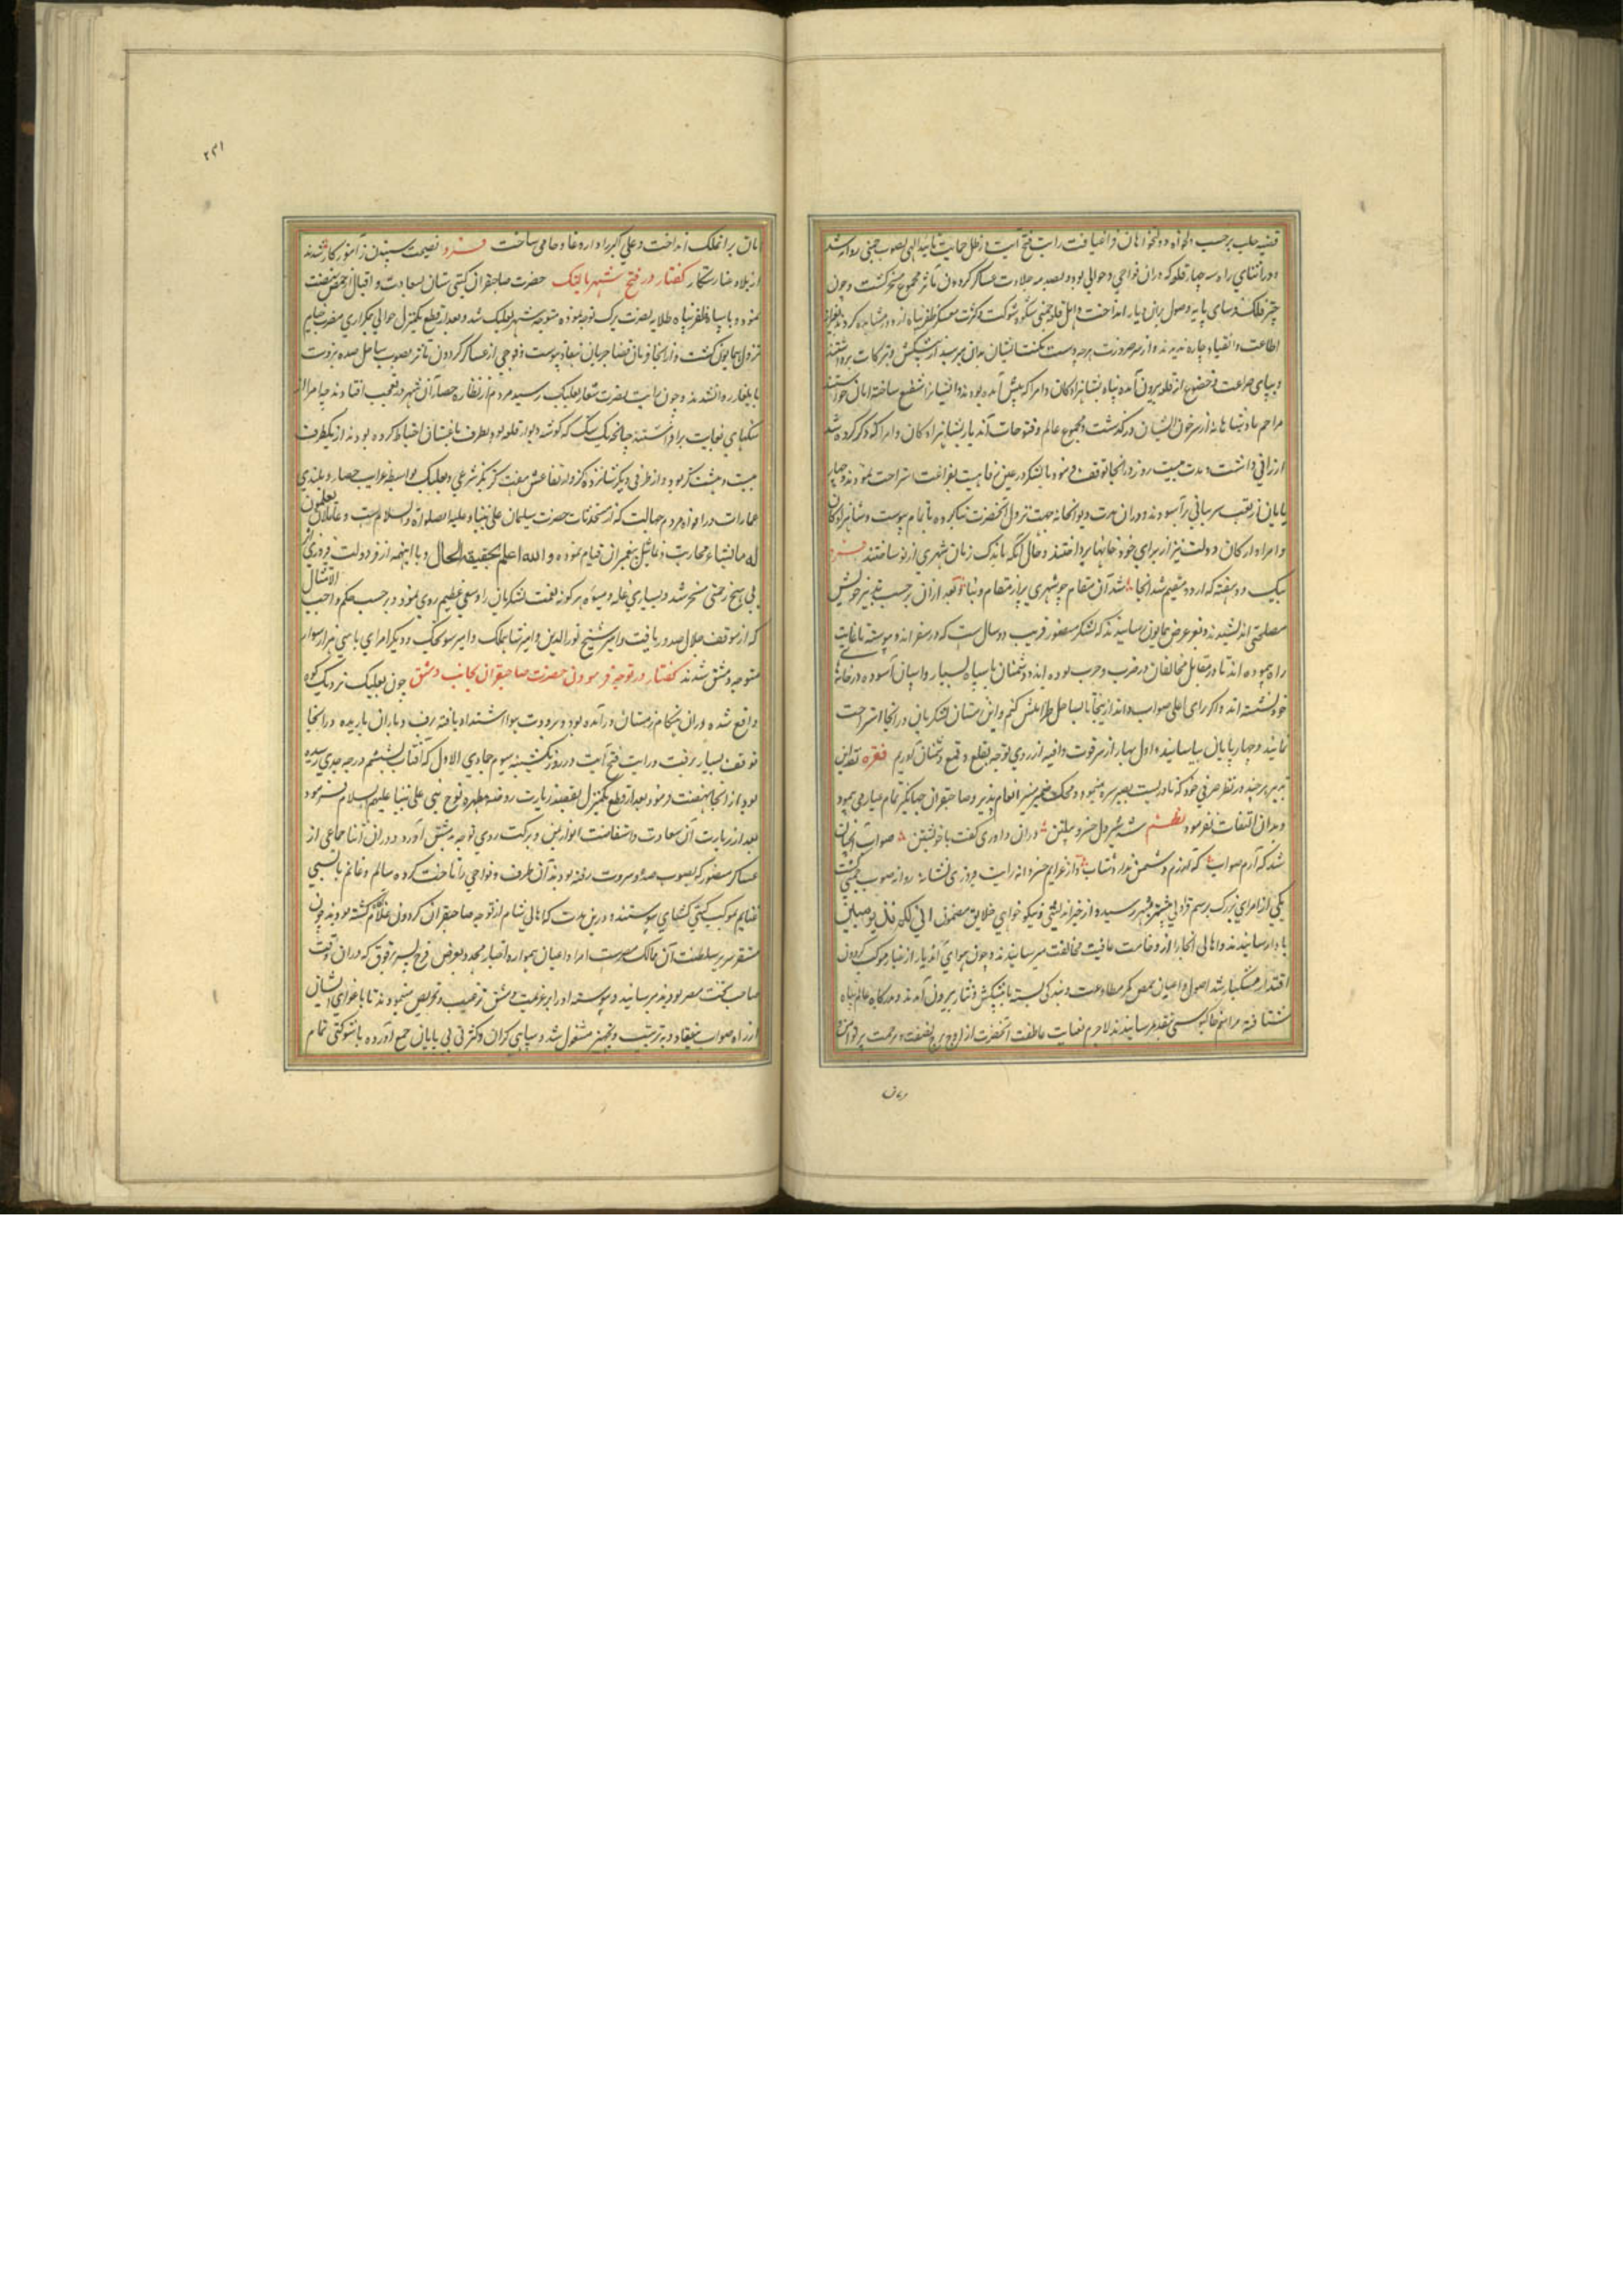 قضیه حلب برحسب دلخواه دولتخواهان فراغ یافت رایت فتح آیت در ظل حمایت تایید الهی بصوب حمی روانه شد
و در اثنای راه سه چهار قلعه که در ان نواحی و حوالی بود و بصدمه جلادت عساکر کردون مآثر مجموع مسخر کشت و چون
چتر فلک فرسای پایه وصول بران دیار انداخت و اهل قلعه حمی شکوه شوکت و کثرت معسکر ظفر پناه از دور مشاهده کردند بغیر از
اطاعت و انقیاد چاره ندیدند و از سر ضرورت هرچه دست مکنت ایشان بدان میرسید از پیشکش و تبرکات برداشتند
و بپای ضراعت و خضوع از قلعه بیرون آمده پناه بشاهزادکان و امرا که پیش آمده بودند و ایشانرا شفیع ساخته امان خواستند
مراحم پادشاهانه از سر خون ایشان درکذشت و مجموع عالم و فتوحات آن دیار بشاهزادکان و امرا که ذکر کرده شد
ارزانی داشت و مدت بیست روز در انجا توقف فرمود تا لشکر در عین رفاهیت بفراغت استراحت نمودند و چهار
پایان از تعب برآسودند و در ان مدت دیوانخانه جهت نزول آنحضرت بنا کرده باتمام پیوست و شاهزادکان
و امرا و ارکان دولت نیز از برای خود خانها پرداختند و حالی آنکه باندک زمان شهری از نو ساختند
بیک دو هفته که اردو مقیم شد انجا شد آن مقام چو شهری پر از مقام و بنا و بعد از ان برحسب تدبیر خویش
مصلحتی اندیشیدند و بعرض همایون رسانیدند که لشکر منصور قریب دو سال است که در سفراند و پیوسته مسافات
راه پیموده اند تا در مقابل مخالفان در ضرب و حرب بوده اند و دشمنان با سپاه بسیار و اسپان آسوده در خانهای
خود نشسته اند و اکر رای اعلی صواب داند از ینجا تا بساحل طرابلس کنیم و این زمستان لشکریان در انجا استراحت
نمایند و چهارپایان بیاسایند و اول بهار از سر قوت وافیه از روی توجه بقلع و قمع دشمنان آوریم فقره
تدبیر هرچند در نظر عقل خرده که نادر است بصیر سره مینمود و محک ضمیر منیر الهام پذیر صاحبقران جهانکیر تمام عیار نمی نمود
و بدان التفات نفرمود نظم شه شیر دل خسرو پیلتن در ان داوری کفت با خویشتن صواب آنچنان
شد که آرم صواب که آورزم دشمن ندارد شتاب و از عزایم خسروانه رایت فیروزی نشانه روانه صوب حمص کشت
یکی از امرای بزرک برسم قراولی پیشتر بشهر رسیده از خیراندیشی و نیکوخواهی خلایق مضمون انی لکم نذیر مبین
با دار رسانیدند و اهالی انجا را از وخامت عاقبت مخالفت میرسانیدند و چون هوای آن دیار از غبار موکب کردون
اقتدار مشکبار شد اصول و اعیان حمص کمر مطاوعت و بندکی بسته با پیشکش و نثار بیرون آمدند و بدرکاه عالم پناه
شتافته مراسم خاکبوسی بتقدیم رسانیدند لاجرم غایت عاطفت آنحضرت از اوج برج شفقت و مرحمت پرتو امن و
امان بر انملک انداخت و علی اکبر را داروغا و حامی ساخت فرد نصیحت سببون ز آموزکار شدند
از بلاد خنارستکار کفتار در فتح شهر بعلبک حضرت صاحبقران کیتی ستان بسعادت و اقبال از حمص نهضت
نمود و با سپاه ظفر پناه طلایه نصرت یزک توجه نموده متوجه شهر بعلبک شد و بعد از قطع یکمنزل حوالی نمکزاری مضرب خیام
نزول همایون کشت و از انجا فرمان قضا جریان بنفاذ پیوست و فوجی از عساکر کردون مآثر بصوب ساحل صیده و بیروت
بایلغار روانه شدند و چون رایت نصرت شعار ببعلبک رسید مردم از نظاره حصار آن شهر در تعجب افتادند چه امرا از
سنکهای بغایت برافراشته اند چنانچه یک سنک که کوشه دیوار قلعه بود بطرف باغستان احتیاط کرده بودند از یکطرف
بیست و هشت کز بود و از طرفی دیکر شانزده کز و ارتفاعش هفت کز بکز شرعی و بعلبک بواسطه غرایب حصار و بلندی
عمارات در افواه مردم چنانست که از مستحدثات حضرت سلیمان علی نبینا و علیه الصلوة و السلام است و عاملان یعملون
له ما یشاء من محاریب و تماثیل بتعمیر ان قیام نموده و الله اعلم بحقیقه الحال و با اینهمه از فر دولت فیروزی اثر
بی هیچ زحمتی مسخر شد و بسیاری غله و میوه و هرکونه نعمت لشکریان را وسعی عظیم روی نمود و برحسب حکم واجب الامتثال
که از موقف جلال صدور یافت و امیر شیخ نورالدین و امیر شاهملک و امیر سونجک و دیکر امرای با سی هزار سوار
متوجه دمشق شدند کفتار در توجه فرمودن حضرت صاحبقران بجانب دمشق چون بعلبک نزدیک کوه
واقع شده و در ان هنکام زمستان درآمده بود و برودت هوا اشتداد یافته برف و باران باریده در انجا
توقف بسیار نرفت و رایت فتح آیت در روز یکشنبه سیوم جمادی الاول که آفتاب بششم درجه جدی رسیده
بود از انجا نهضت فرمود و بعد از قطع یکمنزل بقصد زیارت روضه مطهره نوح نبی علی نبینا علیهم السلام فرمود
بعد از زیارت آن سعادت و استفاضت انوار یمن و برکت روی توجه بدمشق آورد و در ان اثنا جماعی از
عساکر منصور که بصوب صیده و بیروت رفته بودند آن طرف و نواحی را تاخت کرده سالم و غانم با بسی
غنایم بموکب کیتی کشای پیوستند و در ین مدت که اهالی شام از توجه صاحبقران کردون غلام آکاه کشته بودند چون
مستقر سریر سلطنت آن ممالک مصر است امرا و اعیان همواره اخبار مجدد بعرض فرج پسر برقوق که در ان وقت
صاحب تخت مصر بود میرسانیدند و پیوسته او را بر عزیمت دمشق ترغیب و تحریص مینمودند تا باغوای ایشان
از راه صواب بیفتاد و بترتیب و تجهیز مشغول شد و سپاهی کران و کثرتی بی پایان جمع آورده با شوکتی تمام